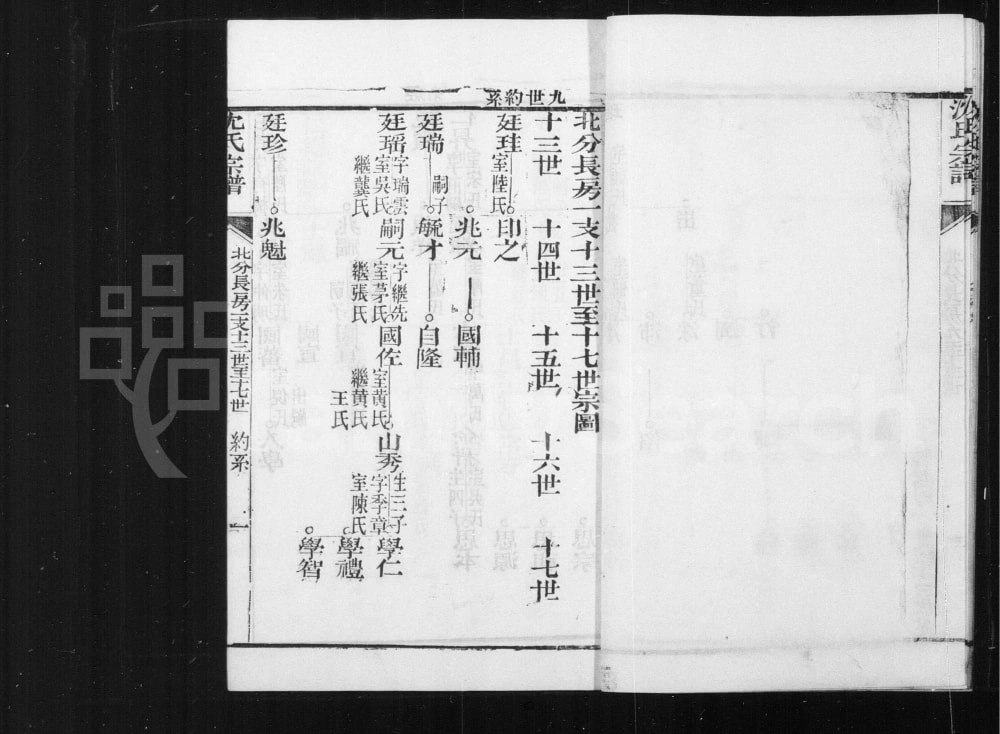 九世約系
北分長房一支十三世至十七世宗圖
十三世 十四世 十五世 十六世 十七世
廷珪 室陸氏 印之
兆元 國輔
廷瑞 嗣子 毓才 自隆
廷瑶 字瑞雲 室吳氏 繼龔氏 嗣元 字繼先 室茅氏 繼張氏 國佐 室黃氏 繼黄氏 王氏 山秀 生三子 字季章 室陳氏 學仁
學禮
學智
廷珍 兆魁
沈氏宗譜 北分長房一支十三世至十七世 約系 一